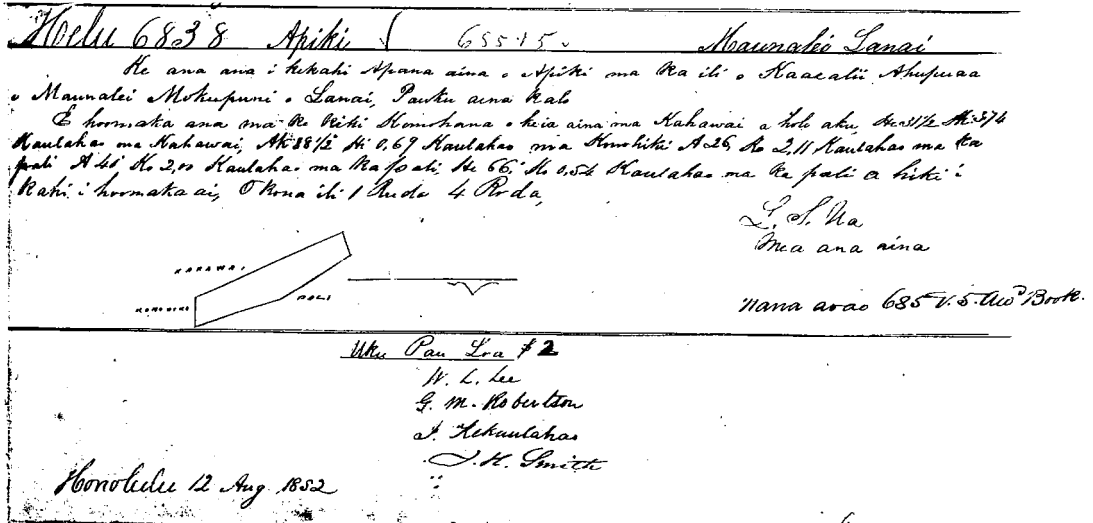 Helu 6838 Apiki 655.5. Maunalei Lanai
He ana ana i kekahi Apana aina o Apiki ma Ka ili o Kaaealii Ahupuaa
o Maunalei Mokupuni o Lanai, Pauku aina Kalo
E hoomaka ana ma Ke Kiki Komohana o keia aina ma Kahawai a holo aku, He. 31 1/2 Hi. 3,74
Kaulahao ma Kahawai, Ak 18 1/2 Hi 0,69 Kaulahao ma Konohiki A 26, Ko 2,11 Kaulahao ma Ka
pali A 45 Ko 2,00 Kaulahao ma Ka pali, He 66, Ko 0,54 Kaulahao ma Ke pali a hiki i
Kahi i hoomaka ai, O Kona ili 1 Ruda 4 Roda,
L. S. Ua
Mea ana aina
KAHAWAI
PALI
KONOHIKI
Nana aoao 685 V. 5. Awd Book.
Uku Pau Loa $2
W. L. Lee
G. M. Robertson
J. Kekaulahao
J. H. Smith
Honolulu 12 Aug 1852